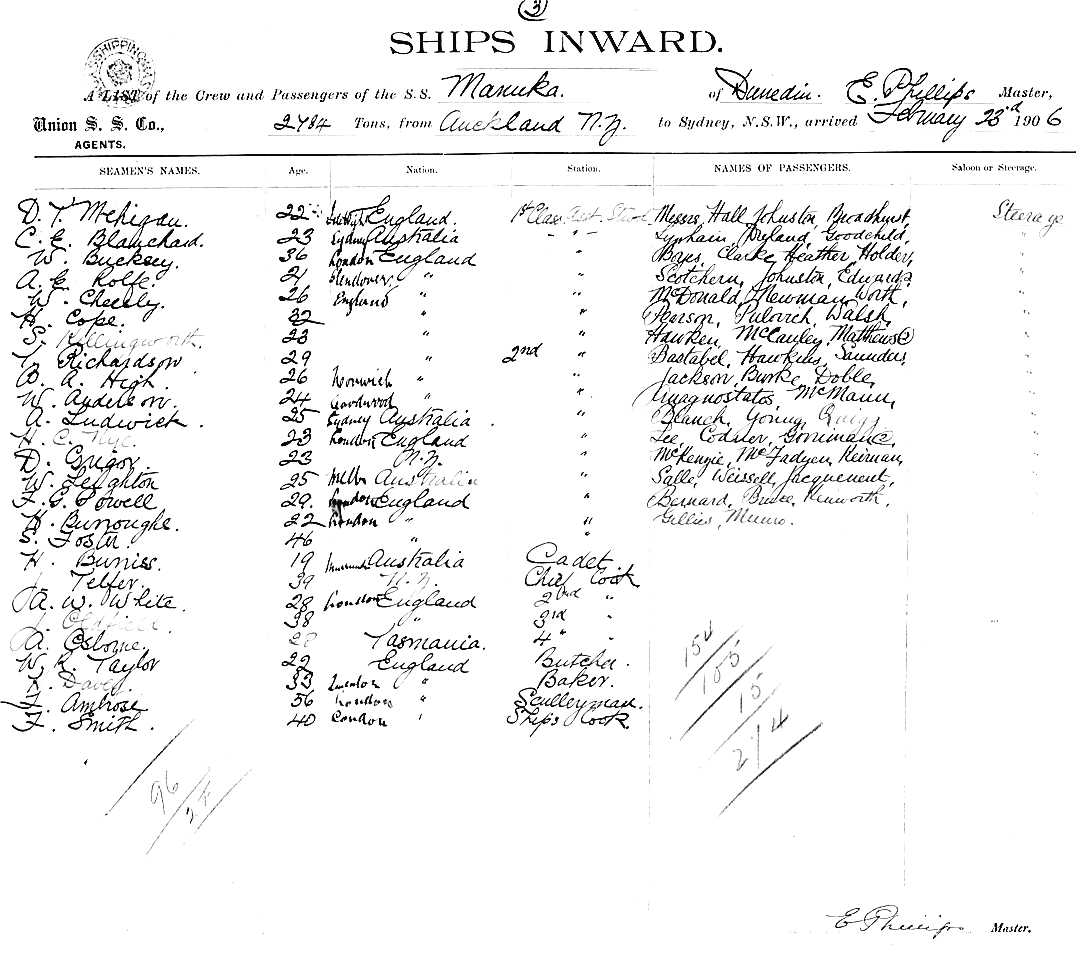 3
SHIPS INWARD.
SHIPPING
A LIST of the Crew and Passengers of the S.S. Manuka. of Dunedin. E. Phillips Master,
Union S. S. Co., 2784 Tons, from Auckland N.Z. to Sydney, N.S.W., arrived February 23rd 1906
AGENTS.
SEAMEN'S NAMES. Age. Nation. Station. NAMES OF PASSENGERS. Saloon or Steerage.
D. T. 22 England. 1st Class Messrs Hall Johnston Broadhurst, Steerage
C. E. Blanchard. 23 Sydney Australia " Goodchild, "
W. Bucksey. 36 London England " Boys, Clarke, Heather, Holder, "
A. E. Rolfe. 21 " " Scotchern, Johnston, Edwards "
W. Cheesly. 26 England " " McDonald, Newman, Worth, "
H. Cope. 32 " " Pearson, Pulovich, Walsh, "
S. Killingworth. 23 " " Hawken, McCauley, Mathews "
Richardson 29 " 2nd " Bastabel, Hawkins, Saunders "
B. A. High. 26 Norwich " " Jackson, Burke, Doble, "
W. Anderson. 24 " Anagnostatos, McMann, "
A. Ludwick. 25 Sydney Australia " Blanch, Young, "
H. C. Nye. 23 London England " Lee, "
D. Grigor. 23 N.Z. " McKenzie, McFadyen, Keirnan, "
W. Leighton 25 Melb Australia " Salle, Weissell, Jacquement, "
F. G. Powell 29. London England " Bernard, Bruce, Kenworth, "
H. Burroughs. 22 London " " Gillies, Munro. "
S. Foster. 46 " "
H. Burniss. 19 Australia Cadet.
J. Telfer. 39 N.Z. Chief Cook
A. W. White. 28 London England 2nd "
J. Oldfield. 38 " 3rd "
A. Osborne. 28 Tasmania. 4th "
W. R. Taylor 22 England Butcher.
Davey. 33 London " Baker.
Ambrose 56 London " Sculleryman.
F. Smith. 40 London " Ships Cook.
154
155
15
274
96
24
E Phillips Master.